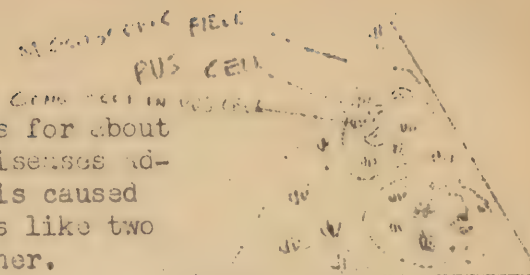 MICROSCOPIC FIELD
PUS CELL
IN PUS CELL
s for about
isenses ad-
is caused
s like two
her.